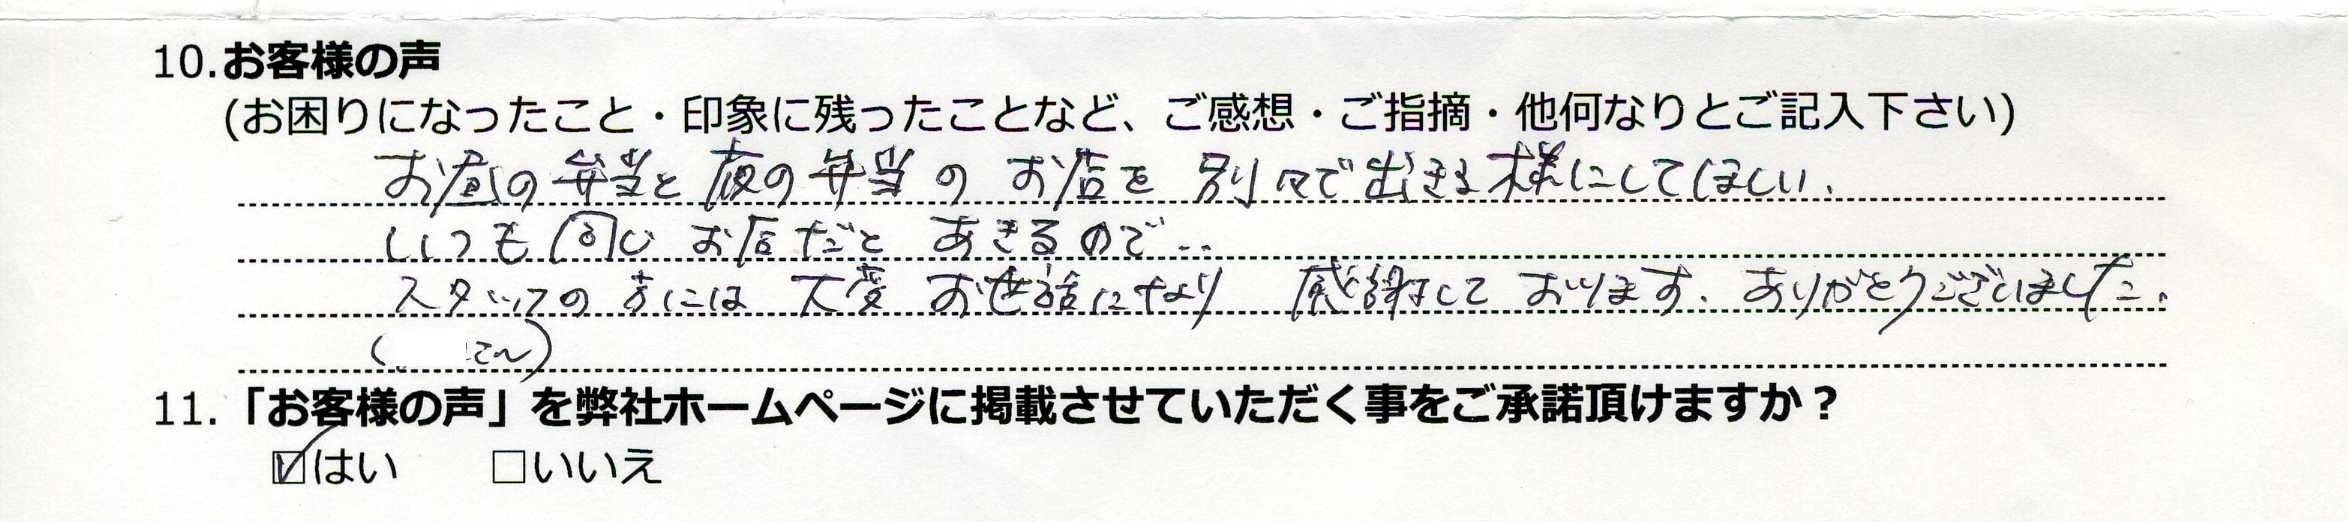 10.お客様の声
(お困りになったこと・印象に残ったことなど、ご感想・ご指摘・他何なりとご記入下さい)
お昼の弁当と夜の弁当の お店を 別々で出きる様にしてほしい.
いつも同じ お店だと あきるので..
スタッフの方には 大変 お世話になり 感謝して おります. ありがとうございました.
11.「お客様の声」を弊社ホームページに掲載させていただく事をご承諾頂けますか？
☑はい □いいえ